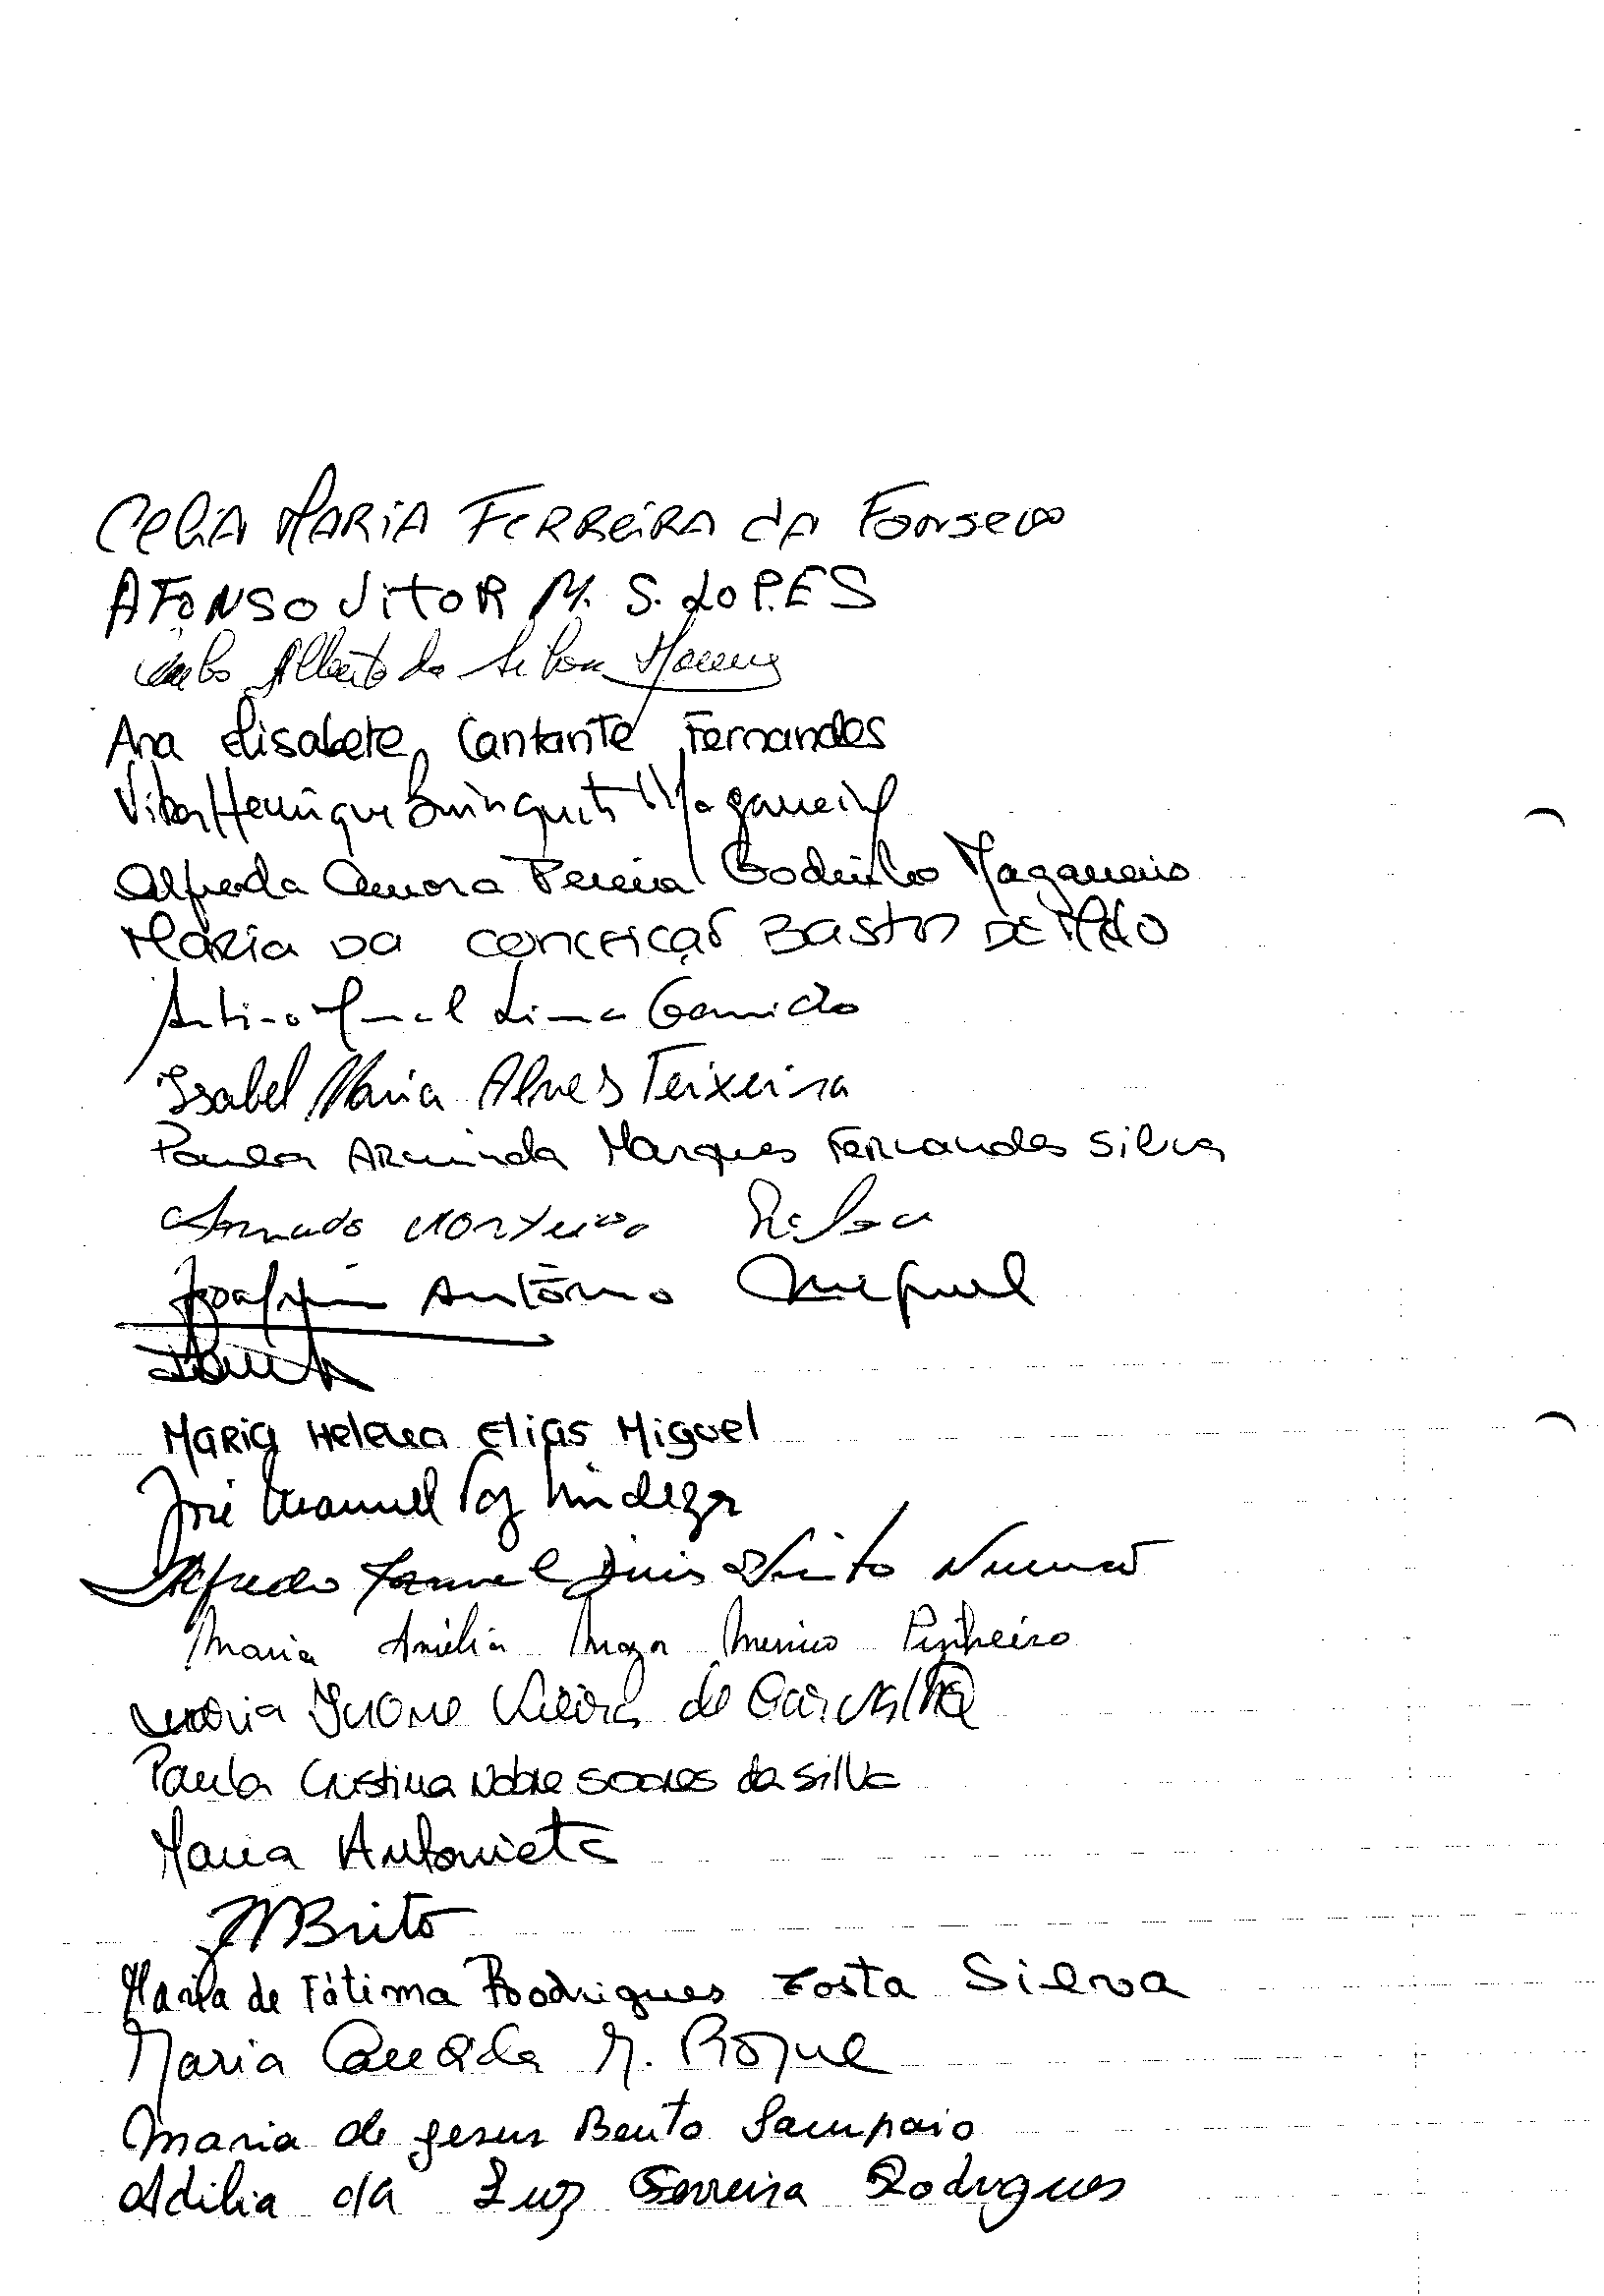 Celia Maria Ferreira da Fonseca
Afonso Vitor M. S. Lopes
Alberto da Silva
Ana Elisabete Cantante Fernandes
Vitor Henrique Maganeiro
Alfreda Amora Pereira Godinho Maganeiro
Maria da Conceição Bastos de Melo
Lima Garrido
Isabel Maria Alves Teixeira
Paula Arminda Marques Fernandes Silva
Armado Monteiro Silva
Joaquim António Miguel
Maria Helena Elias Miguel
José Manuel Vaz Mindeza
Alfredo Luis
Maria Amélia Pinheiro
Maria Ivone Vieira de Carvalho
Paula Cristina Nobre Soares da Silva
Maria Antonieta
Brito
Maria de Fátima Rodrigues Costa Silva
Maria M. Roque
Maria de Jesus Bento Sampaio
Adilia da Luz Ferreira Rodrigues